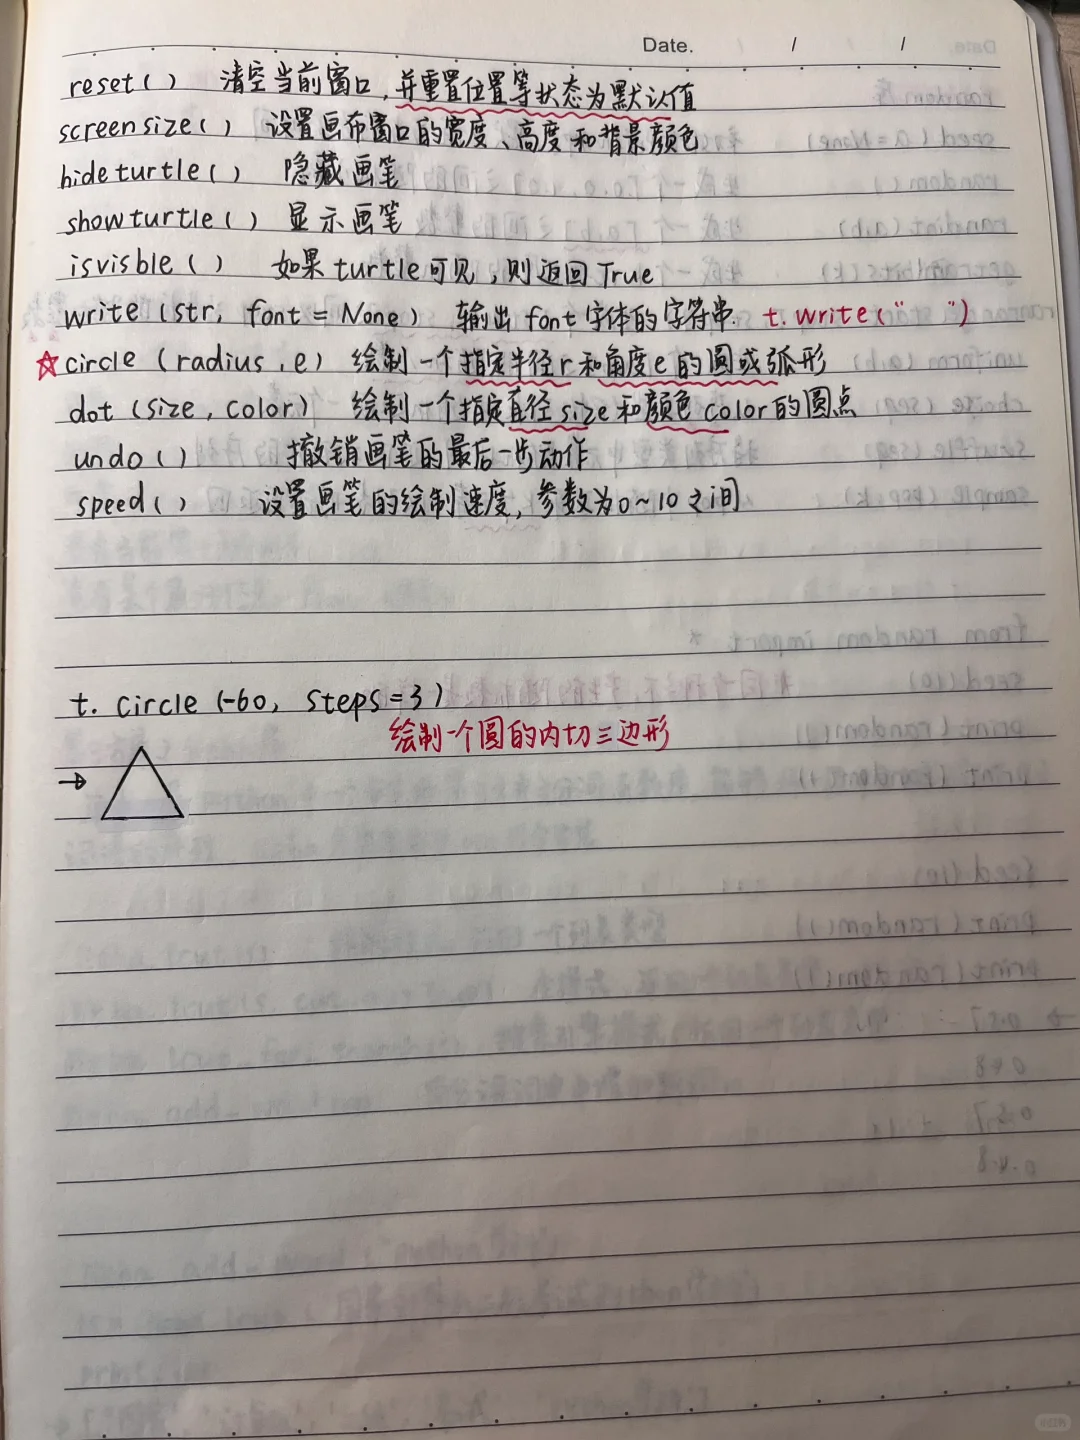 Date. / /
reset() 清空当前窗口,并重置位置等状态为默认值
screensize() 设置画布窗口的宽度、高度和背景颜色
hideturtle() 隐藏画笔
showturtle() 显示画笔
isvisble() 如果turtle可见,则返回True
write(str, font = None) 输出font字体的字符串. t.write(" ")
☆circle(radius,e) 绘制一个指定半径r和角度e的圆或弧形
dot(size,color) 绘制一个指定直径size和颜色color的圆点
undo() 撤销画笔的最后一步动作
speed() 设置画笔的绘制速度,参数为0~10之间
t. circle(-60, steps=3)
绘制一个圆的内切三边形
→